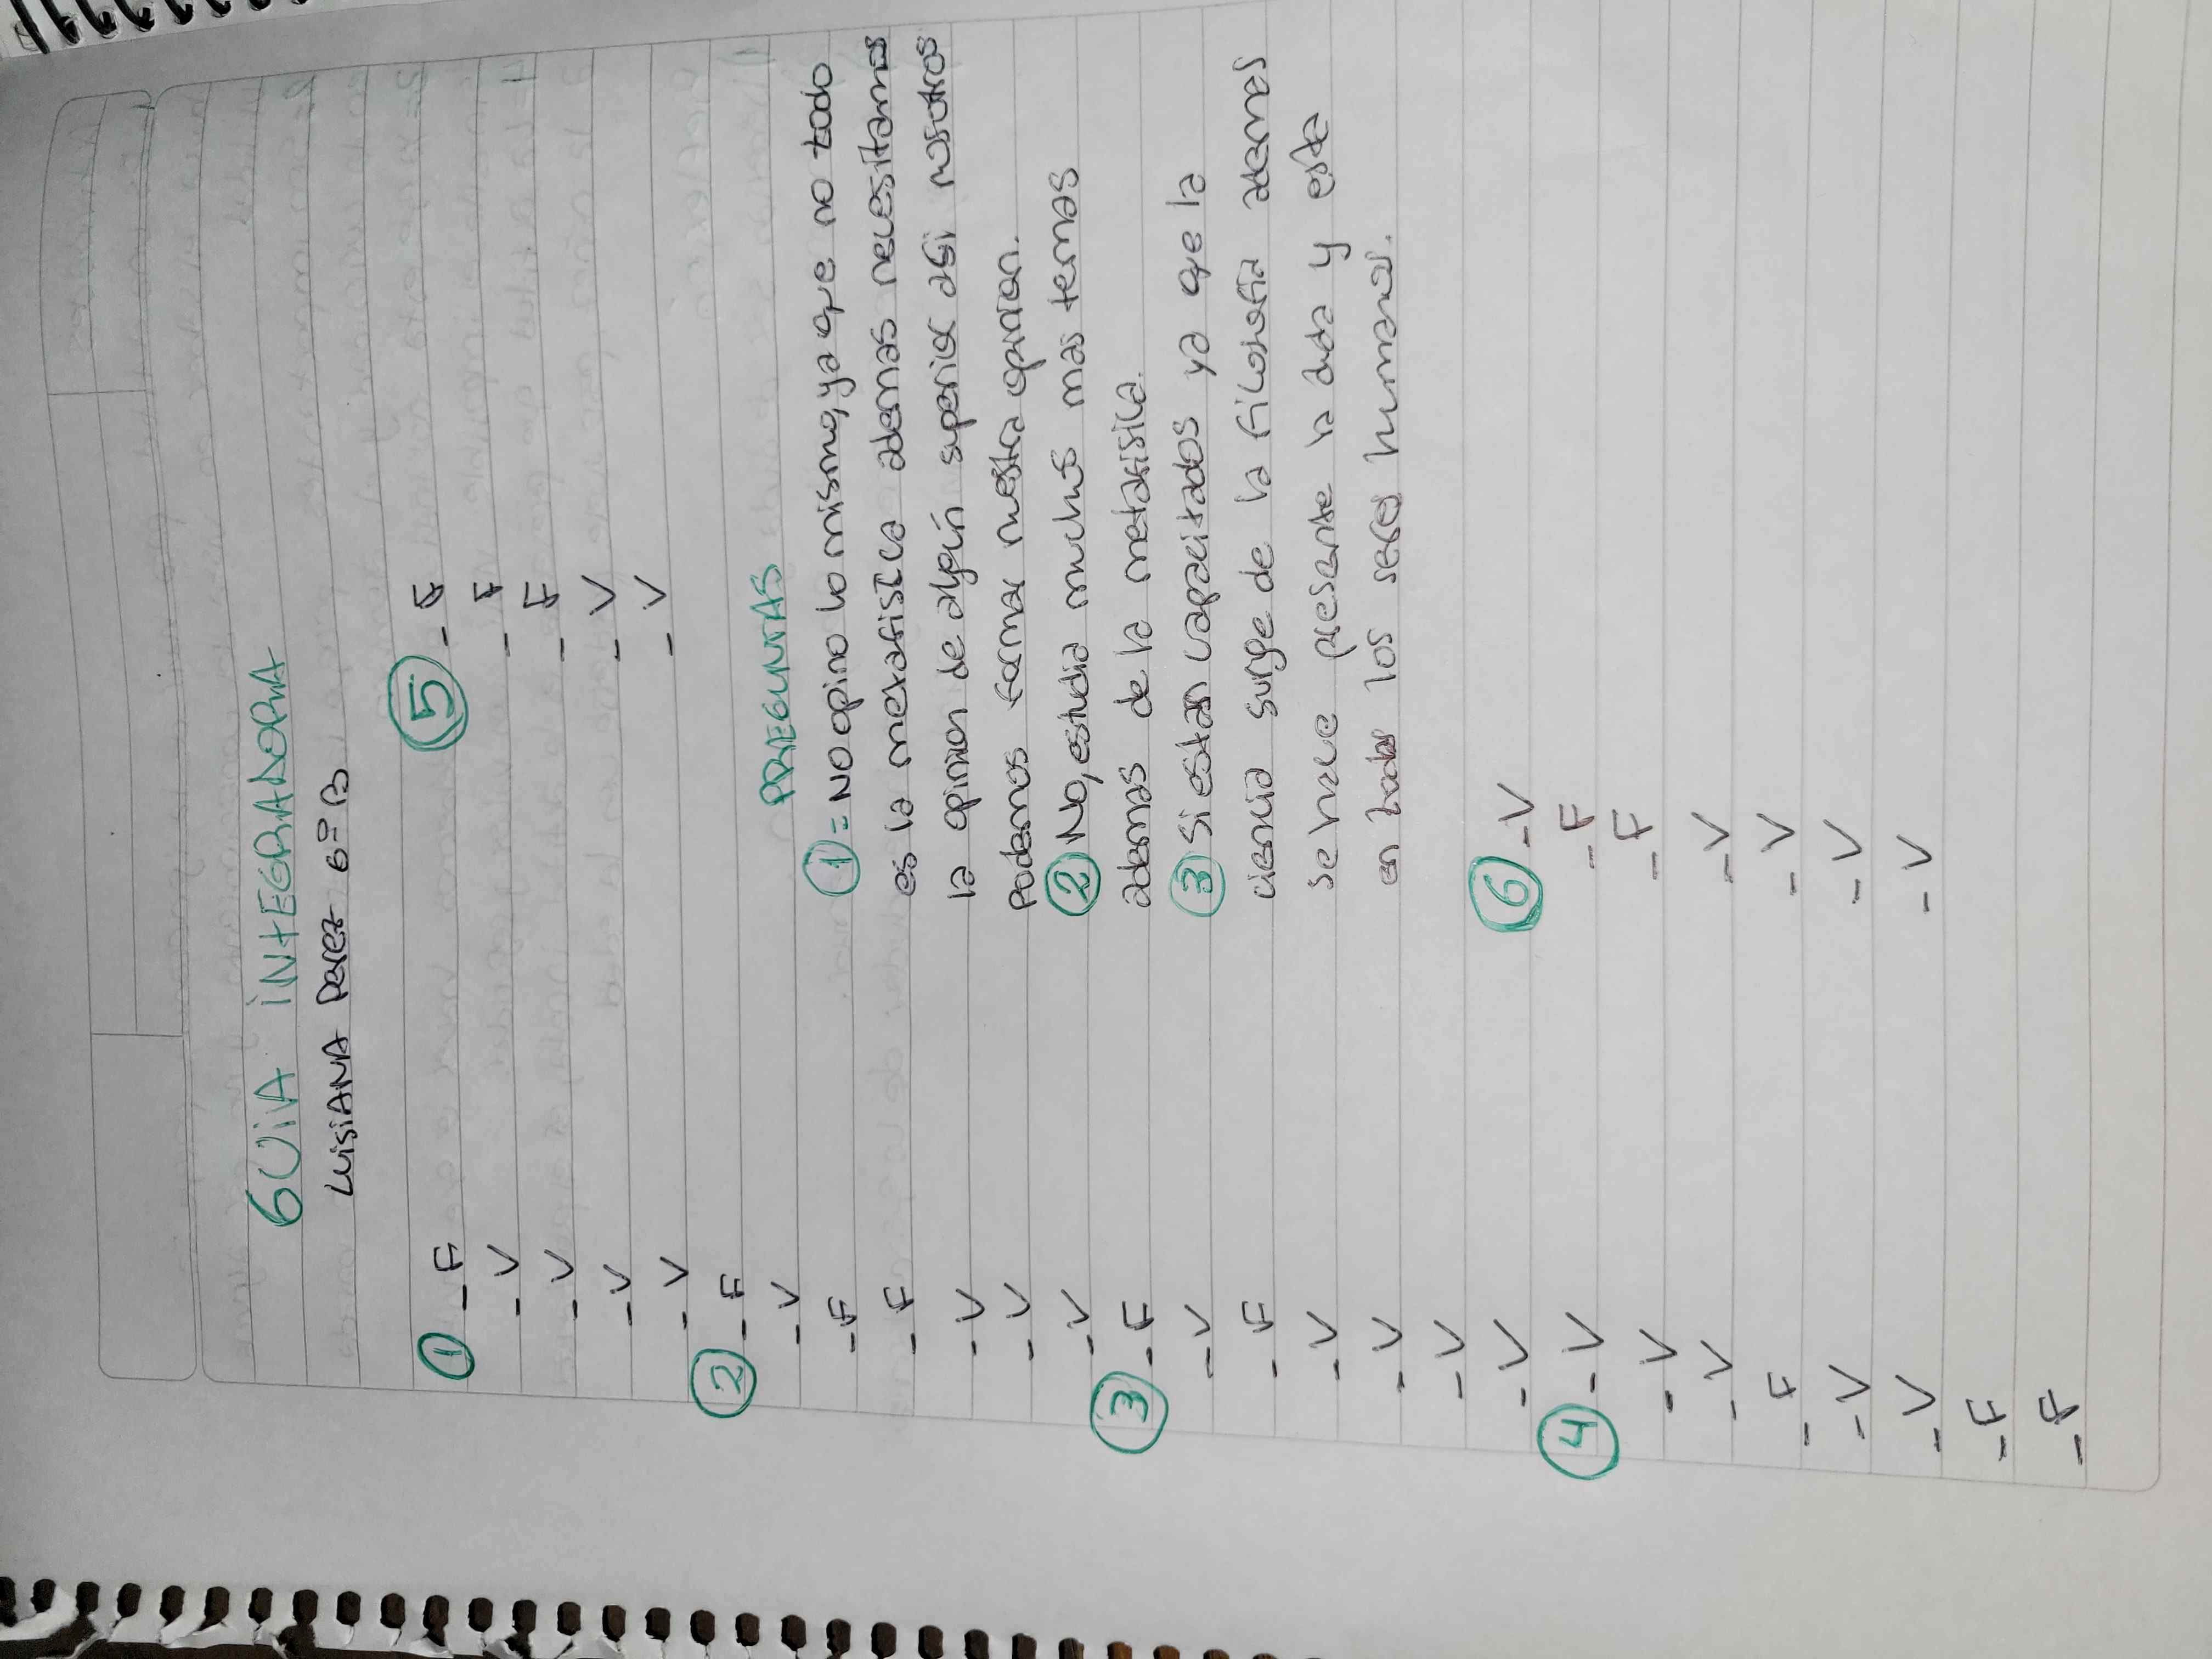 GUIA INTEGRADORA
LUISIANA Perez 6º B
① - F
- V
- V
- V
- V
② - F
- V
- F
- F
- V
- V
- V
③ - F
- V
- F
- V
- V
- V
- V
④ - V
- V
- V
- F
- V
- V
- F
- F
⑤ - F
- F
- F
- V
- V
PREGUNTAS
① = NO opino lo mismo, ya que no todo
es la metafisica ademas necesitamos
la opinion de algún superior asi nosotros
Podemos formar nuestra opinion.
② No, estudia muchos mas temas
ademas de la metafisica.
③ Si estan capacitados ya que la
ciencia surge de la filosofia ademas
se hace presente la duda y esta
en todos los seres humanos.
⑥ - V
- F
- F
- V
- V
- V
- V